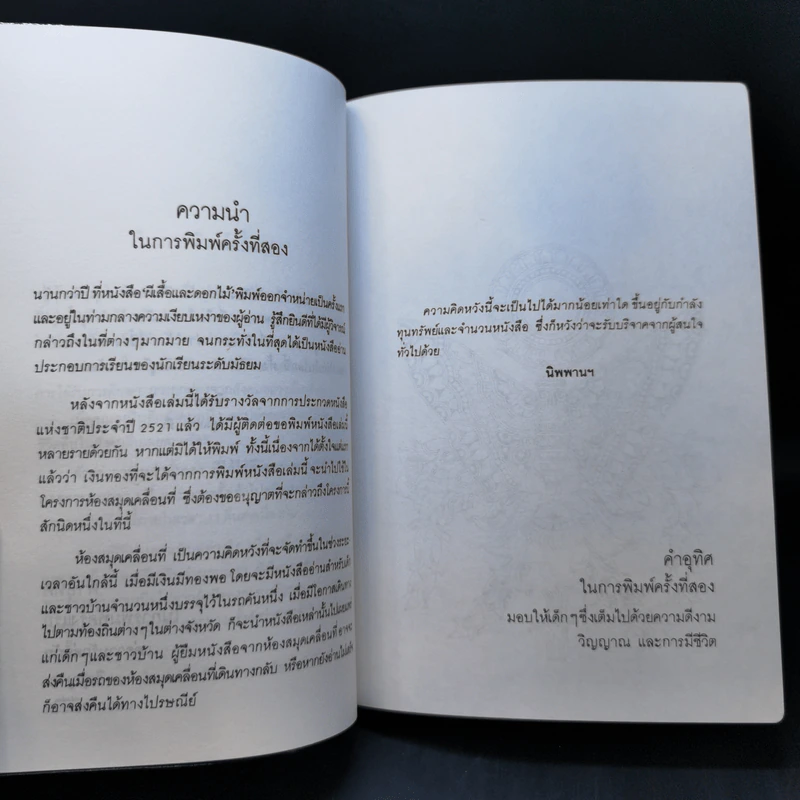 ความนำ
ในการพิมพ์ครั้งที่สอง
นานกว่าปี ที่หนังสือ'ผีเสื้อและดอกไม้'พิมพ์ออกจำหน่ายเป็นครั้งแรก
และอยู่ในท่ามกลางความเงียบเหงาของผู้อ่าน รู้สึกยินดีที่ได้มีผู้วิจารณ์
กล่าวถึงในที่ต่างๆมากมาย จนกระทั่งในที่สุดได้เป็นหนังสืออ่าน
ประกอบการเรียนของนักเรียนระดับมัธยม
หลังจากหนังสือเล่มนี้ได้รับรางวัลจากการประกวดหนังสือ
แห่งชาติประจำปี 2521 แล้ว ได้มีผู้ติดต่อขอพิมพ์หนังสือเล่มนี้
หลายรายด้วยกัน หากแต่มิได้ให้พิมพ์ ทั้งนี้เนื่องจากได้ตั้งใจแต่แรก
แล้วว่า เงินทองที่จะได้จากการพิมพ์หนังสือเล่มนี้ จะนำไปใช้ใน
โครงการห้องสมุดเคลื่อนที่ ซึ่งต้องขออนุญาตที่จะกล่าวถึงโครงการนี้
สักนิดหนึ่งในที่นี้
ห้องสมุดเคลื่อนที่ เป็นความคิดหวังที่จะจัดทำขึ้นในช่วงระยะ
เวลาอันใกล้นี้ เมื่อมีเงินมีทองพอ โดยจะมีหนังสืออ่านสำหรับเด็ก
และชาวบ้านจำนวนหนึ่งบรรจุไว้ในรถคันหนึ่ง เมื่อมีโอกาสเดินทาง
ไปตามท้องถิ่นต่างๆในต่างจังหวัด ก็จะนำหนังสือเหล่านั้นไป
แก่เด็กๆและชาวบ้าน ผู้ยืมหนังสือจากห้องสมุดเคลื่อนที่ อาจจะ
ส่งคืนเมื่อรถของห้องสมุดเคลื่อนที่เดินทางกลับ หรือหากยังอ่านไม่เสร็จ
ก็อาจส่งคืนได้ทางไปรษณีย์
ความคิดหวังนี้จะเป็นไปได้มากน้อยเท่าใด ขึ้นอยู่กับกำลัง
ทุนทรัพย์และจำนวนหนังสือ ซึ่งก็หวังว่าจะรับบริจาคจากผู้สนใจ
ทั่วไปด้วย
นิพพานฯ
คำอุทิศ
ในการพิมพ์ครั้งที่สอง
มอบให้เด็กๆซึ่งเต็มไปด้วยความดีงาม
วิญญาณ และการมีชีวิต